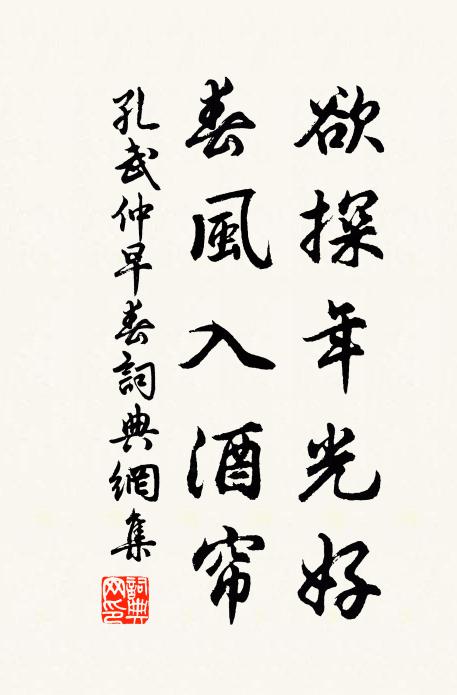 欲探年光好
春風入酒帘
孔武仲早春詞典網集
詞典網印